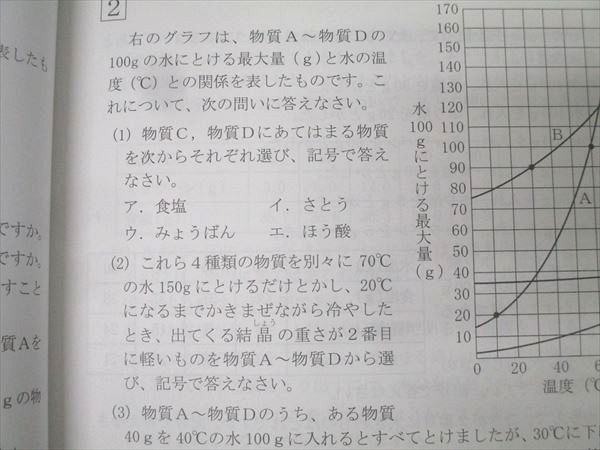 2
右のグラフは、物質A～物質Dの
100gの水にとける最大量(g)と水の温
度(℃)との関係を表したものです。こ
れについて、次の問いに答えなさい。
(1) 物質C，物質Dにあてはまる物質
を次からそれぞれ選び、記号で答え
なさい。
ア．食塩　イ．さとう
ウ．みょうばん　エ．ほう酸
(2) これら4種類の物質を別々に70℃
の水150gにとけるだけとかし、20℃
になるまでかきまぜながら冷やした
しょう
とき、出てくる結晶の重さが2番目
に軽いものを物質A～物質Dから選
び、記号で答えなさい。
(3) 物質A～物質Dのうち、ある物質
40gを40℃の水100gに入れるとすべてとけましたが、30℃に下
表したも
ですか。
ですか。
すこと
質Aを
gの物
水100gにとける最大量(g)
170
160
150
140
130
120
110
100
90
80
70
60
50
40
30
20
10
B
A
0 20 40 6
温度(℃